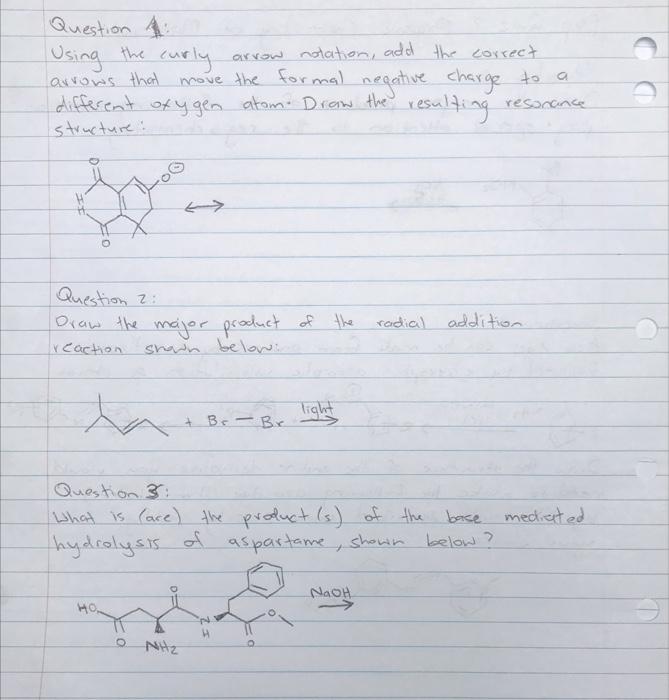 Question 1:
Using the curly arrow notation, add the correct
arrows that move the formal negative charge to a
different oxygen atom. Draw the resulting resonance
structure:
O
O ⊖
H
H
O
↔
Question 2:
Draw the major product of the radial addition
reaction shown below:
+ Br — Br light →
Question 3:
What is (are) the product(s) of the base mediated
hydrolysis of aspartame, shown below?
HO
O
NH2
O
N
H
O
O
NaOH →